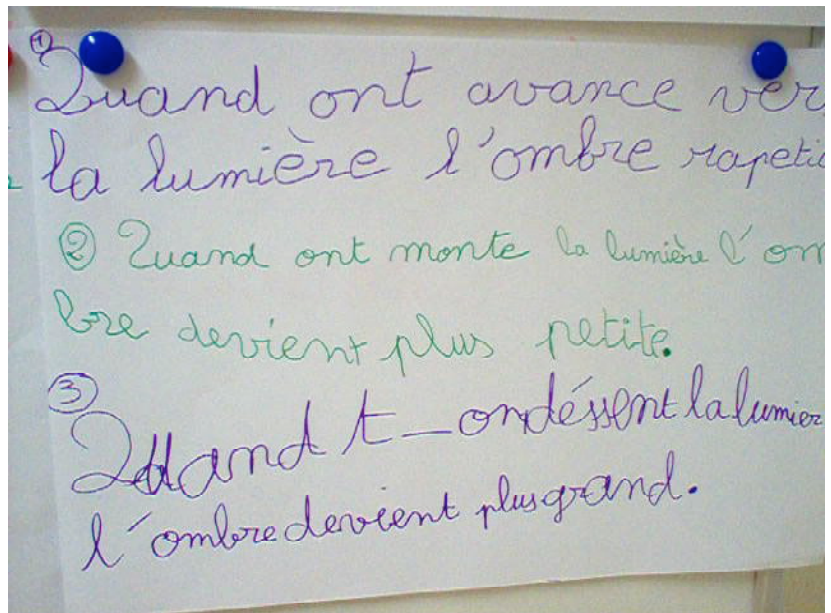 ① Quand ont avance ver
la lumière l'ombre rapetic
② Quand ont monte la lumière l'om
bre devient plus petite.
③
Quand t_ondéssent la lumier
l'ombre devient plus grand.